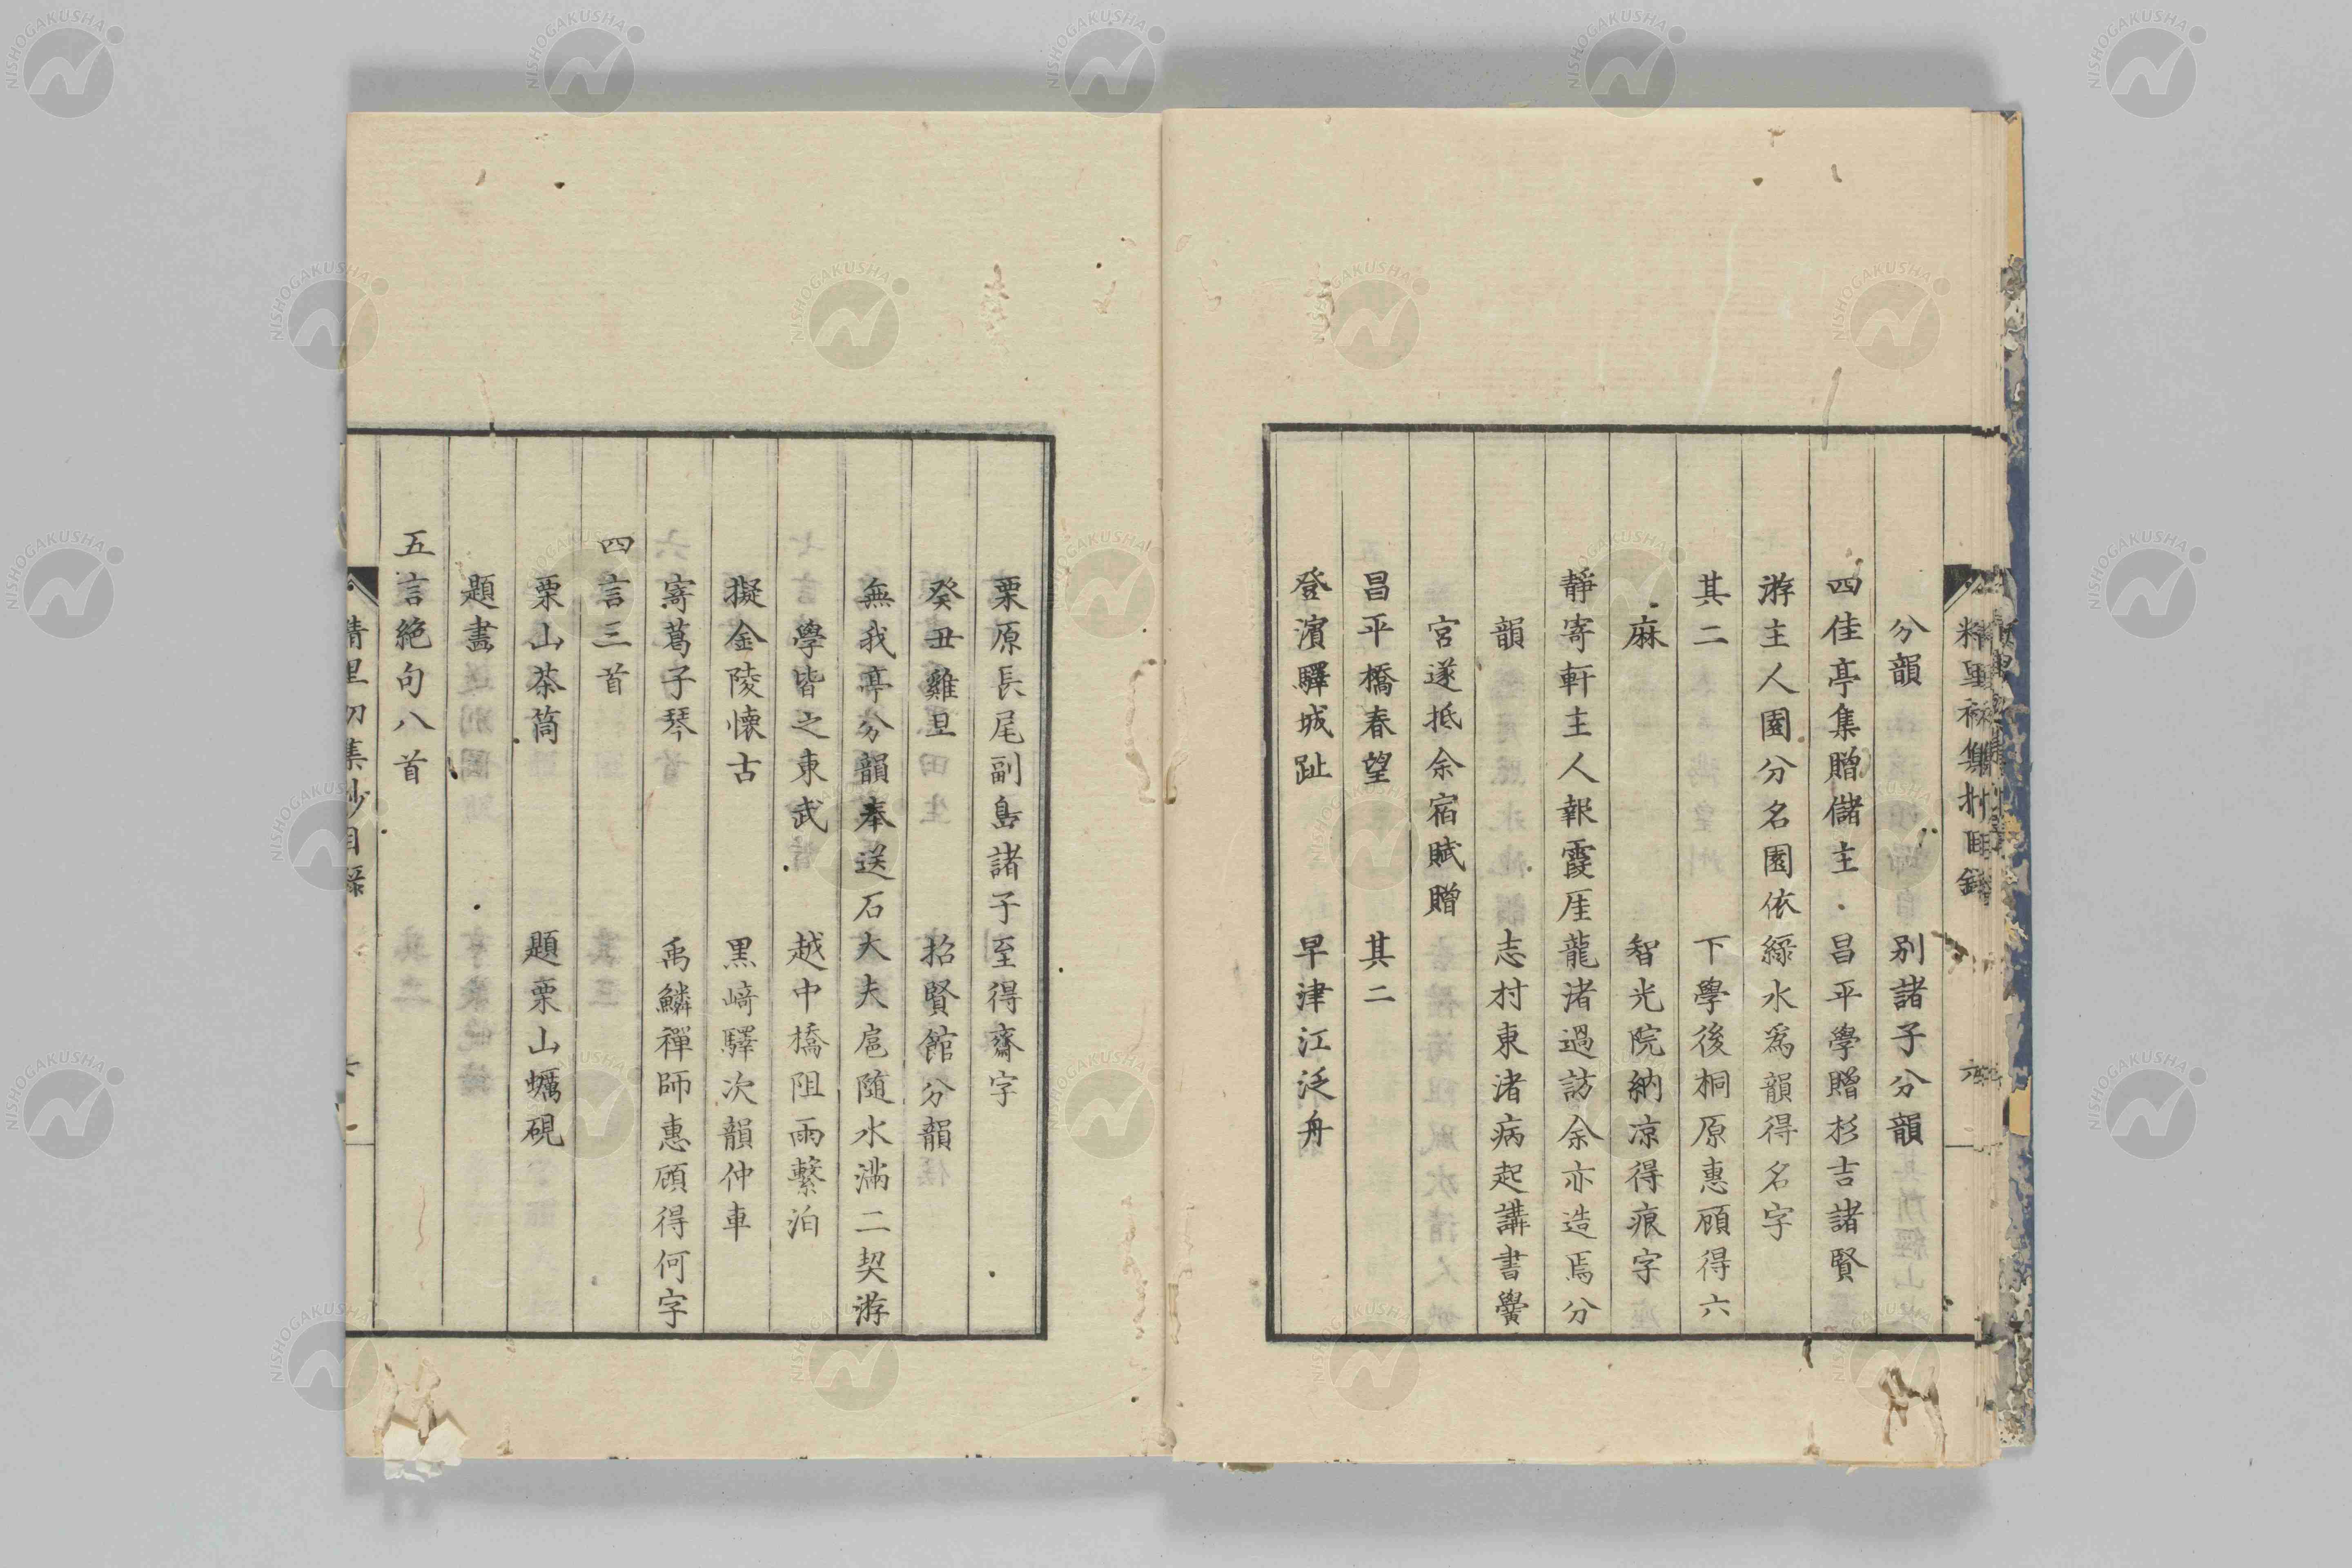 分韻　別諸子分韻
四佳亭集贈儲主　昌平學贈杉吉諸賢
游主人園分名園依綠水爲韻得名字
其二　下學後桐原惠顧得六
麻　智光院納凉得痕字
靜寄軒主人報霞厓龍渚過訪余亦造焉分
韻　志村東渚病起講書黌
宮遂抵余宿賦贈
昌平橋春望　其二
登濱驛城趾　早津江泛舟
栗原長尾副島諸子至得齋字
癸丑雞旦　招賢館分韻
無我亭分韻奉送石大夫扈隨水滿二契游
學皆之東武　越中橋阻雨繫泊
擬金陵懷古　黒﨑驛次韻仲車
寄葛子琴　禹鱗禪師惠顧得何字
四言三首
栗山茶筒　題栗山蠣硯
題畫
五言絕句八首
精里初集抄目錄
NISHOGAKUSHA